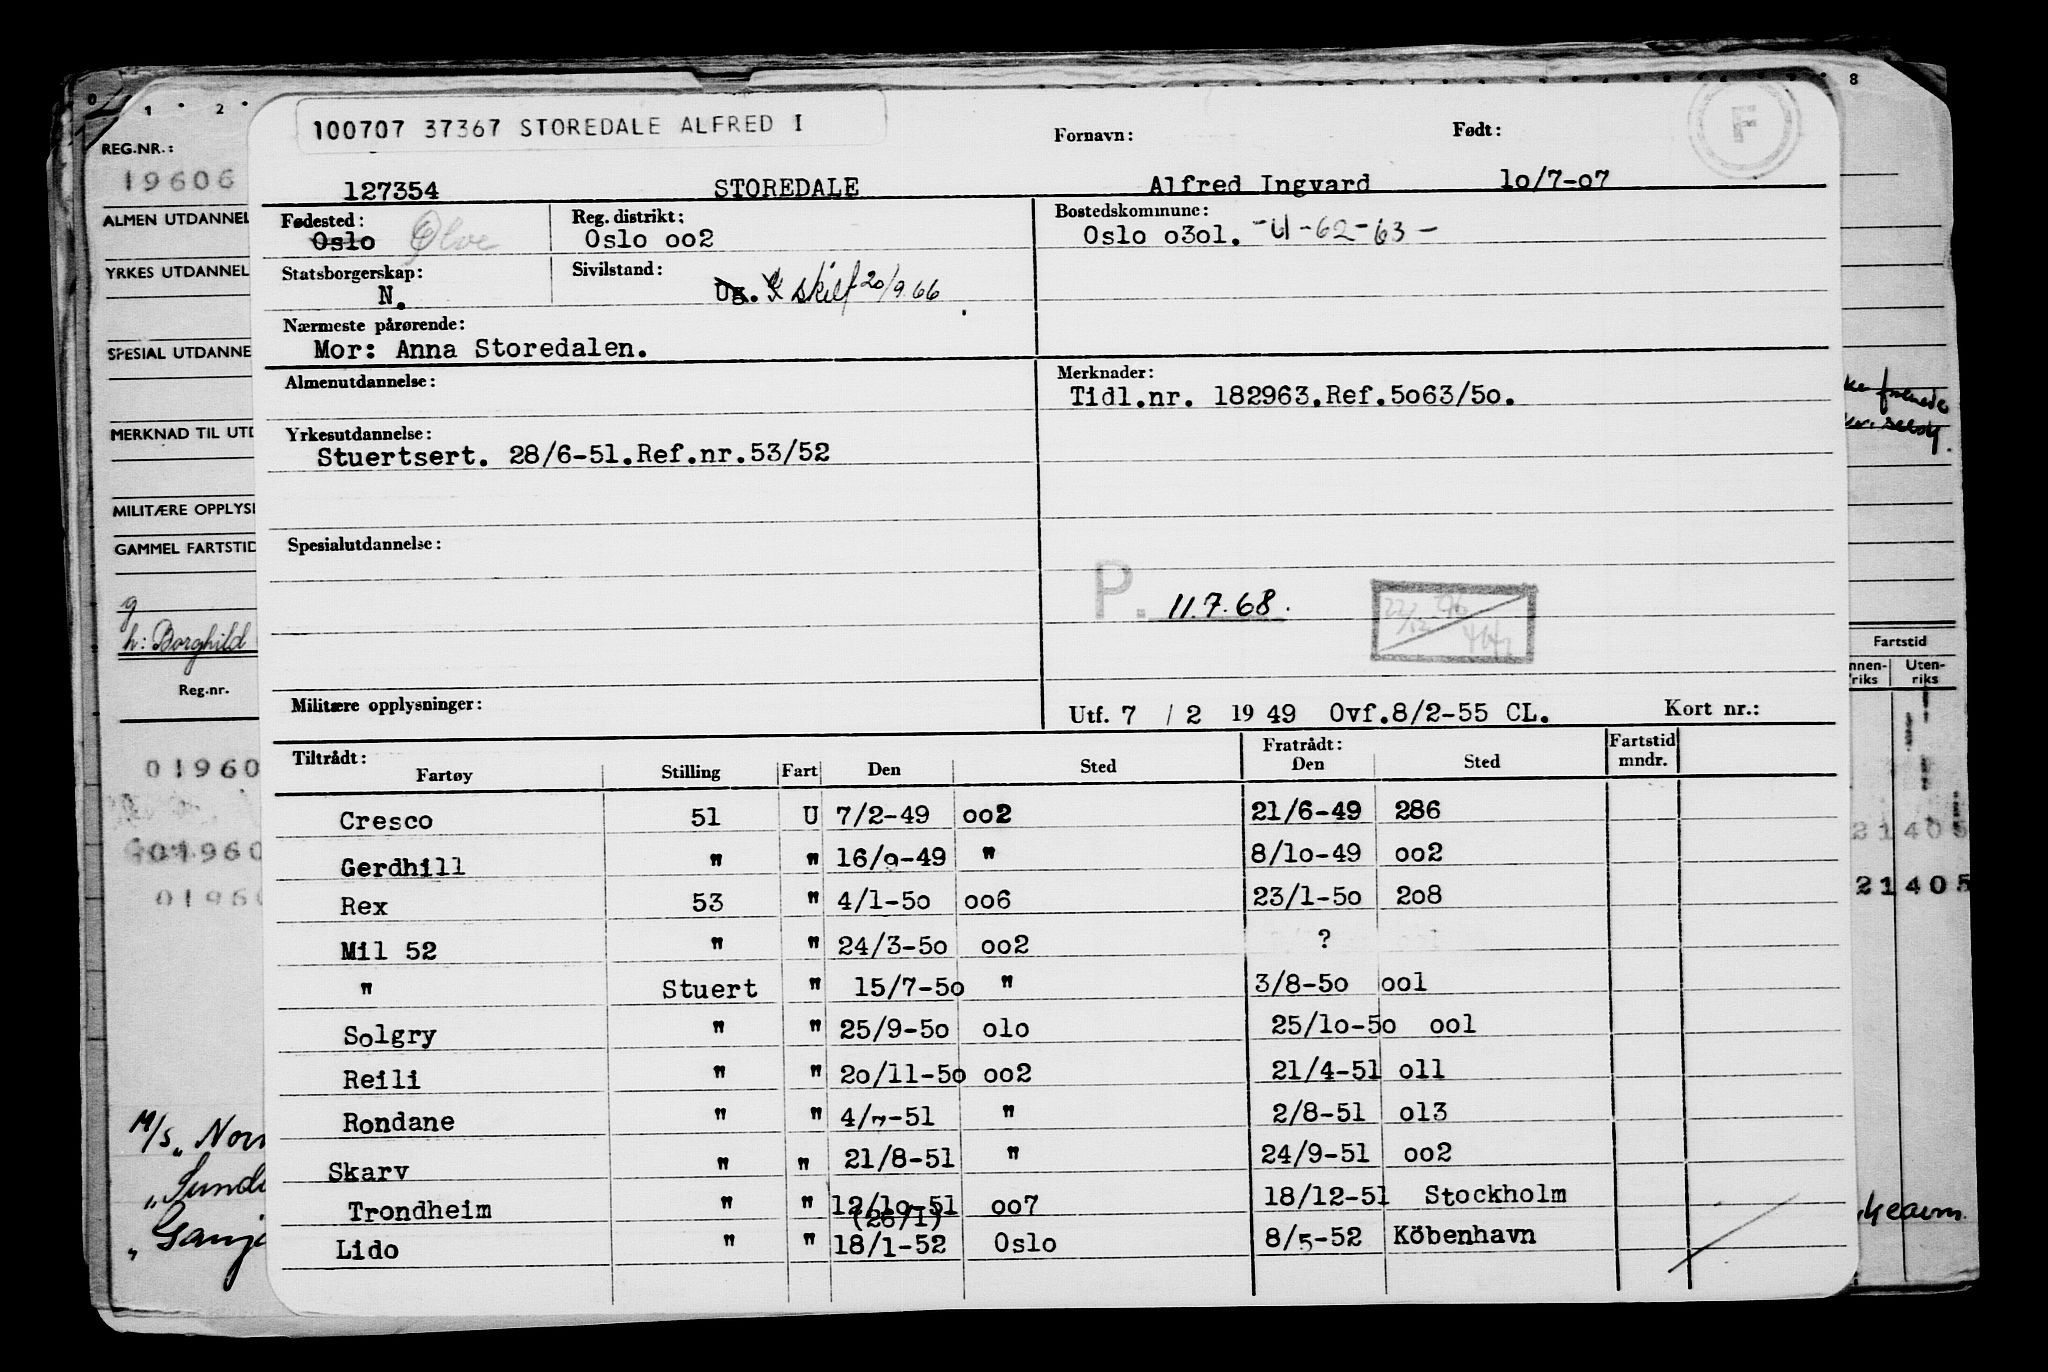 0 1 2 8
100707 37367 STOREDALE ALFRED I
Fornavn: Født: F
REG.NR.:
19606
127354 STOREDALE Alfred Ingvard 10/7-07
ALMEN UTDANNEL
Fødested: Reg. distrikt: Bostedskommune:
Oslo Ølve Oslo oo2 Oslo o3o1. -U-62-63-
YRKES UTDANNEL
Statsborgerskap: Sivilstand:
N. Ug. skilt 20/9.66
Nærmeste pårørende:
Mor: Anna Storedalen.
SPESIAL UTDANNE
Almenutdannelse: Merknader:
Tidl.nr. 182963.Ref.5o63/5o.
MERKNAD TIL UTD
Yrkesutdannelse:
Stuertsert. 28/6-51.Ref.nr.53/52
MILITÆRE OPPLYS
GAMMEL FARTSTID
Spesialutdannelse:
P. 11.7.68.
g
h: Borghild
Fartstid
Innen- Uten-
riks riks
Reg.nr.
Militære opplysninger: Utf. 7 / 2 19 49 Ovf.8/2-55 CL. Kort nr.:
Tiltrådt: Fratrådt: Fartstid
Fartøy Stilling Fart Den Sted Den Sted mndr.
01960
Cresco 51 U 7/2-49 oo2 21/6-49 286
21405
01960
Gerdhill " " 16/9-49 " 8/1o-49 oo2
21405
01960
Rex 53 " 4/1-5o oo6 23/1-5o 2o8
Mil 52 " " 24/3-5o oo2 ?
" Stuert " 15/7-5o " 3/8-5o oo1
Solgry " " 25/9-5o o1o 25/1o-5o oo1
Reili " " 2o/11-5o oo2 21/4-51 o11
Rondane " " 4/7-51 " 2/8-51 o13
M/S " Nor
Skarv " " 21/8-51 " 24/9-51 oo2
" Sund
Trondheim " " 12/1o-51 oo7 18/12-51 Stockholm
(26/1)
" Ganj
Lido " " 18/1-52 Oslo 8/5-52 Köbenhavn